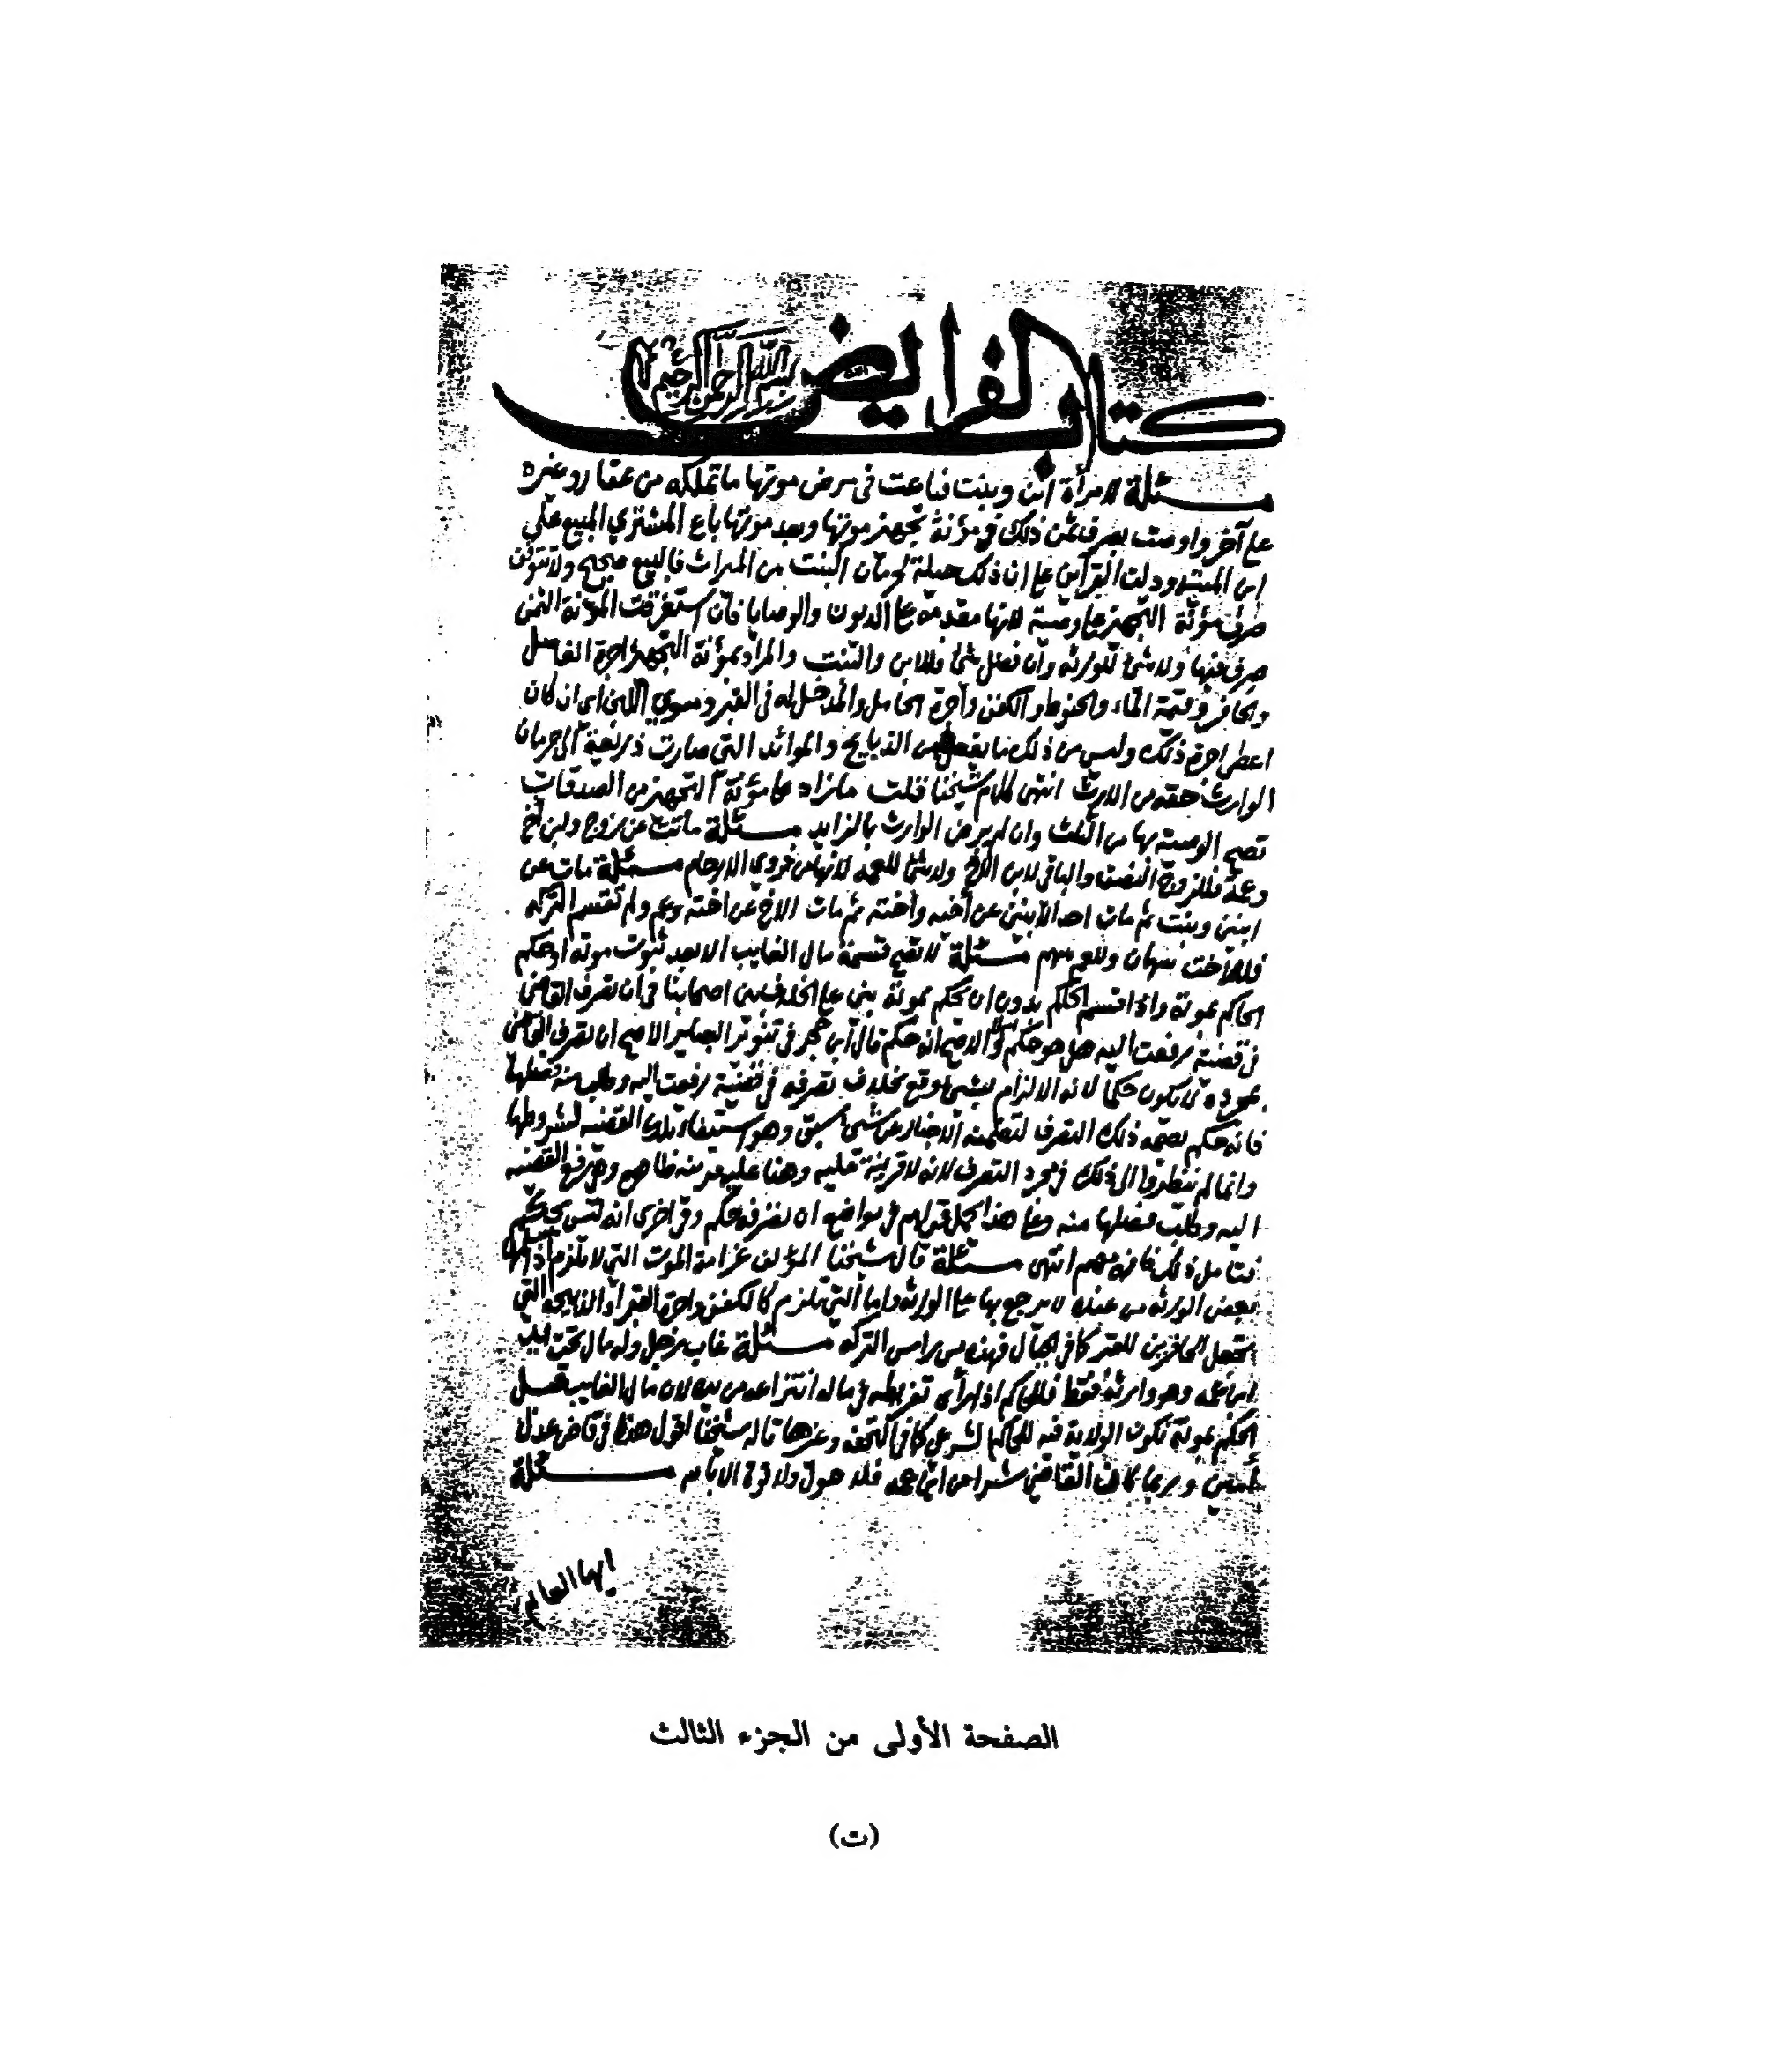 كتاب الفرايض
بسم الله الرحمن الرحيم
مسئلة لامرأة ابن وبنت فباعت في مرض موتها ما تملكه من عقار وغيره
على آخر واوصت بصرف ثمن ذلك في مؤنة تجهيز موتها وبعد موتها باع المشتري المبيع على
ابن الميتة ودلت القرآين على ان ذلك حيلة لحرمان البنت من الميراث فالبيع صحيح ولا تتوقف
صرف مؤنة التجهيز على وصية لانها مقدمة على الديون والوصايا فان استغرقت المؤنة الثمن
صرف فيها ولا شئ للورثه وان فضل شئ فللابن والبنت والمراد بمؤنة التجهيز اجرة الغاسل
والحافر وقيمة الماء والحنوط والكفن وأجرة الحامل والمدخل له في القبر ومسوي اللبن اى ان كان
اعطى اجرة ذلك وليس من ذلك ما يفعل من الذبايح والموائد التي صارت ذريعة الى حرمان
الوارث حقه من الارث انتهى كلام شيخنا قلت ما زاد على مؤنة التجهيز من الصدقات
تصح الوصية بها من الثلث وان لم يرض الوارث بالزايد مسئلة ماتت عن زوج وابن أخ
وعمة فللزوج النصف والباقي لابن الاخ ولا شئ للعمه لانها من ذوي الارحام مسئلة مات عن
ابنين وبنت ثم مات احد الابنين عن أخيه وأخته ثم مات الاخ عن اخته وعم ولم تقسم التركه
فللاخت سهمان وللعم سهم مسئلة لا تصح قسمة مال الغايب الا بعد ثبوت موته او حكم
الحاكم بموته واذا قسم الحاكم بدون ان يحكم بموته بنى على الخلاف بين اصحابنا في أن تصرف القاضي
في قضية رفعت اليه هل هو حكم او لا الاصح انه حكم قال ابن حجر في تنوير البصاير الاصح ان تصرف القاضي
بمجرده لا يكون حكما لانه الالزام بشئ وقع بخلاف تصرفه في قضية رفعت اليه وطلب منه فصلها
فانه حكم بصحة ذلك التصرف لتضمنه الاخبار عن شئ سبق وهو استيفاء تلك القضيه لشروطها
وانما لم ينظروا الى ذلك في مجرد التصرف لانه لا قرينة عليه وهنا عليه قرينه ظاهره وهي رفع القضيه
اليه وطلب فصلها منه وعلى هذا يحمل قولهم في مواضع ان تصرفه حكم وفي اخرى انه ليس بحكم
فتامل ذلك فانه مهم انتهى مسئلة قال شيخنا المؤلف غرامة الموت التي لا تلزم اذا سلمها
بعض الورثه من عنده لا يرجع بها على الورثه واما التي تلزم كالكفن واجرة القبر او الذبيحه التي
تجعل للحافرين للقبر كما في الجبال فهذه من راس التركه مسئلة غاب رجل وله مال تحت يد
ابن عمه وهو وارثه فقط فللحاكم اذا رأى تفريطه في ماله انتزاعه من يده لان مال الغايب قبل
الحكم بموته تكون الولاية فيه للحاكم الشرعي كما في التحفه وغيرها قاله شيخنا اقول هذا في قاض عدل
أمين وربما كان القاضي شرا من ابن عمه فلا حول ولا قوة الا بالله مسئلة
ايها العالم
الصفحة الأولى من الجزء الثالث
(ت)